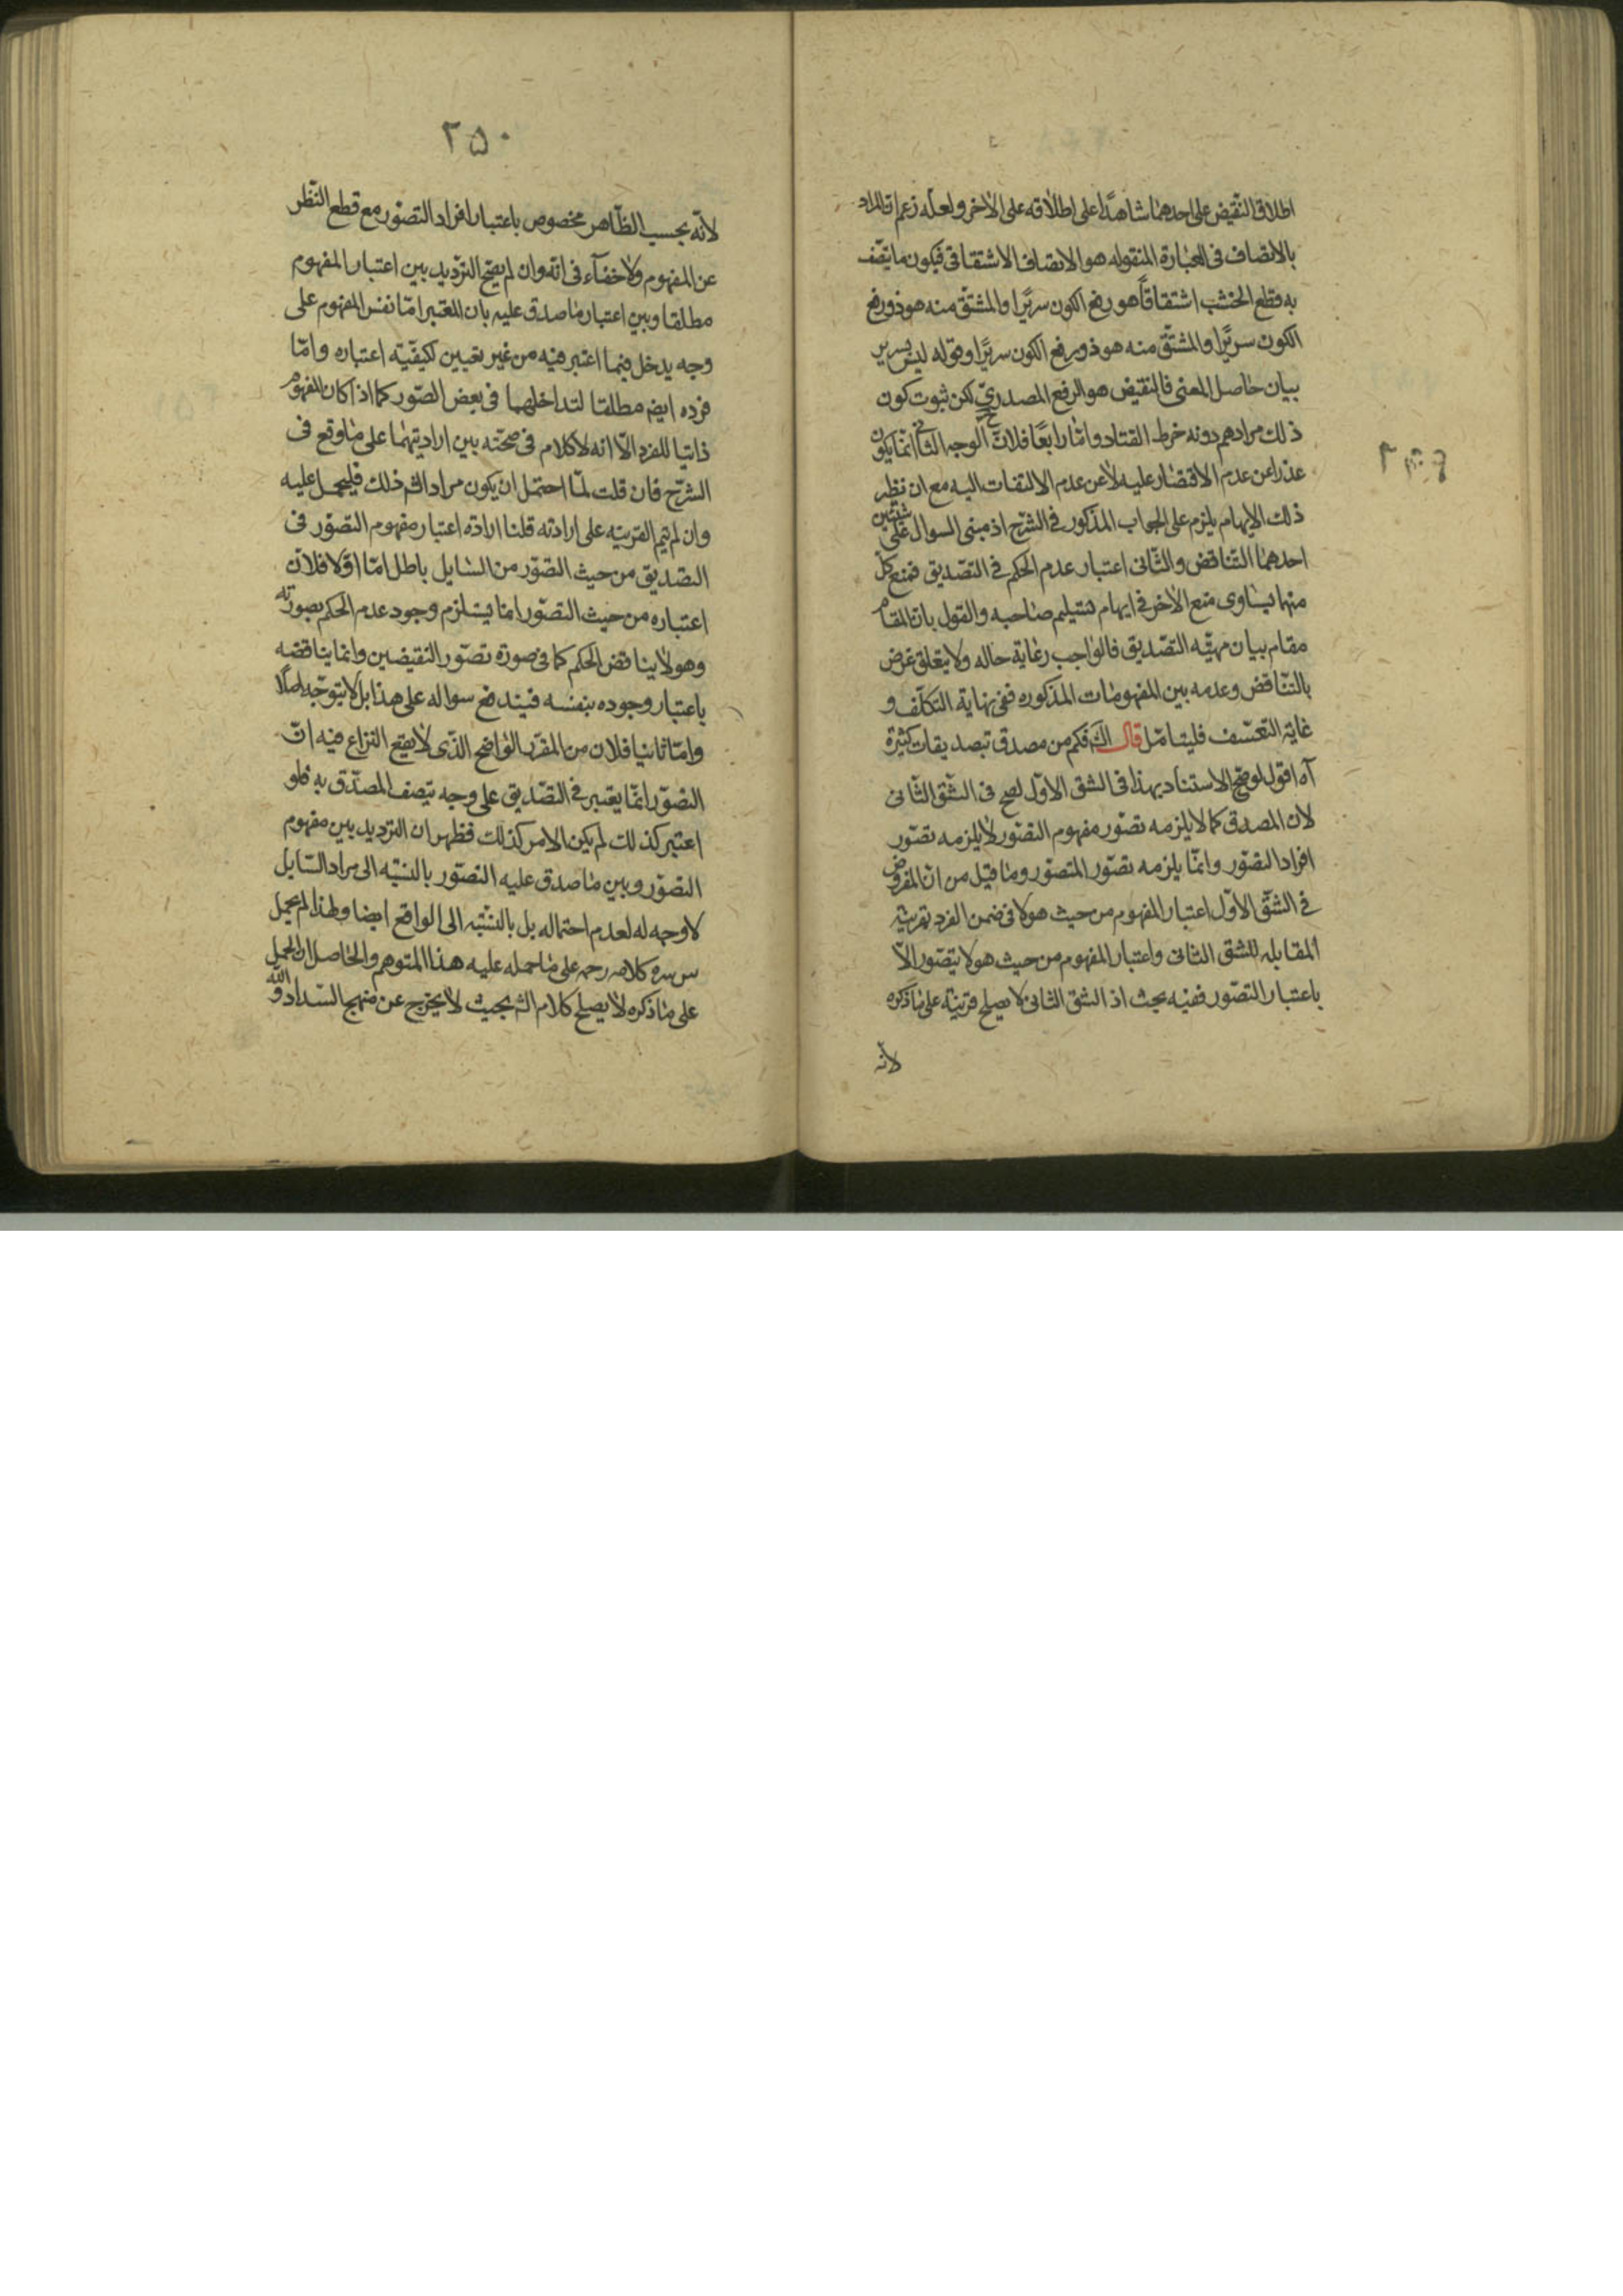 اطلاق النقيض على احدهما شاهدًا على اطلاقه على الاخر ولعله زعم ان المراد
بالاتصاف فى العبارة المنقوله هو الاتصاف الاشتقاقى فيكون ما يتصف
به قطع الخشب اشتقاقًا هو رفع الكون سريرًا والمشتق منه هو ذو رفع
الكون سريرًا والمشتق منه هو ذو رفع الكون سريرًا وقوله ليس بسرير
بيان حاصل المعنى فالنقيض هو الرفع المصدرىّ لكن ثبوت كون
ذلك مرادهم دونه خرط القتاد واما رابعًا فلانّ الوجه انما يكون
عذرا عن عدم الاقتصار عليه لا عن عدم الالتفات اليه مع ان نظير
ذلك الايهام يلزم على الجواب المذكور فى الشرح اذ مبنى السوال على شيئين
احدهما التناقض والثانى اعتبار عدم الحكم فى التصديق فمنع كلّ
منهما يساوى منع الاخر فى ايهام تسليم صاحبه والقول بان المقام
مقام بيان مهيّه التصديق فالواجب رعاية حاله ولا يتعلق غرض
بالتناقض وعدمه بين المفهومات المذكوره ففى نهاية التكلّف و
غاية التعسف فليتامّل قال الش فكم من مصدق تبصديقات كثيرة
آه اقول لو صح الاستناد بهذا فى الشق الاوّل لصح فى الشّق الثّانى
لان المصدق كما لا يلزمه تصوّر مفهوم التصوّر لا يلزمه تصوّر
افراد التصوّر وانّما يلزمه تصوّر المتصوّر وما قيل من انّ المفروض
فى الشّق الاوّل اعتبار المفهوم من حيث هو لا فى ضمن الفرد بقرينة
المقابله للشق الثانى واعتبار المفهوم من حيث هو لا يتصّور الاّ
باعتبار التصوّر ففيه بحث اذ الشق الثانى لا يصلح قرينة على ما ذكره
لانه
٢٥٠
لانّه بحسب الظّاهر مخصوص باعتبار افراد التصوّر مع قطع النّظر
عن المفهوم ولا خفآء فى انّه وان لم يصحّ الترّديد بين اعتبار المفهوم
مطلقا وبين اعتبار ما صدق عليه بان المعتبر امّا نفس المفهوم على
وجه يدخل فيما اعتبر فيه من غير تعيين لكيفيّته اعتباره وامّا
فرده ايضه مطلقا لتداخلهما فى بعض الصّور كما اذا كان المفهوم
ذاتيا للفرد الاّ انه لا كلام فى صحّته بين ارادتيهما على ما وقع فى
الشرح فان قلت لمّا احتمل ان يكون مراد الش ذلك فليحمل عليه
وان لم تتم القرينه على ارادته قلنا ارادة اعتبار مفهوم التصوّر فى
التصديق من حيث التصوّر من السّايل باطل امّا اوّلا فلانّ
اعتباره من حيث التصوّر انما يستلزم وجود عدم الحكم بصورته
وهو لا يناقض الحكم كما فى صورة تصوّر النقيضين وانما يناقضه
باعتبار وجوده بنفسه فيندفع سواله على هذا بل لا يتوجّه اصلًا
وامّا ثانيا فلان من المقرّر الواضح الذّى لا يقع النزاع فيه انّ
التصوّر انمّا يعتبر فى التصّديق على وجه يتصف المصدّق به فلو
اعتبر كذلك لم يكن الامر كذلك فظهر ان الترديد بين مفهوم
التصوّر وبين ما صدق عليه التصوّر بالنسّبه الى مراد السّايل
لا وجهه له لعدم احتماله بل بالنسّبه الى الواقع ايضا ولهذا لم يحمل
س سره كلامه رحمه على ما حمله عليه هذا المتوهم والحاصل ان الحمل
على ما ذكره لا يصلح كلام الش بحيث لا يخرج عن منهج السّداد والله